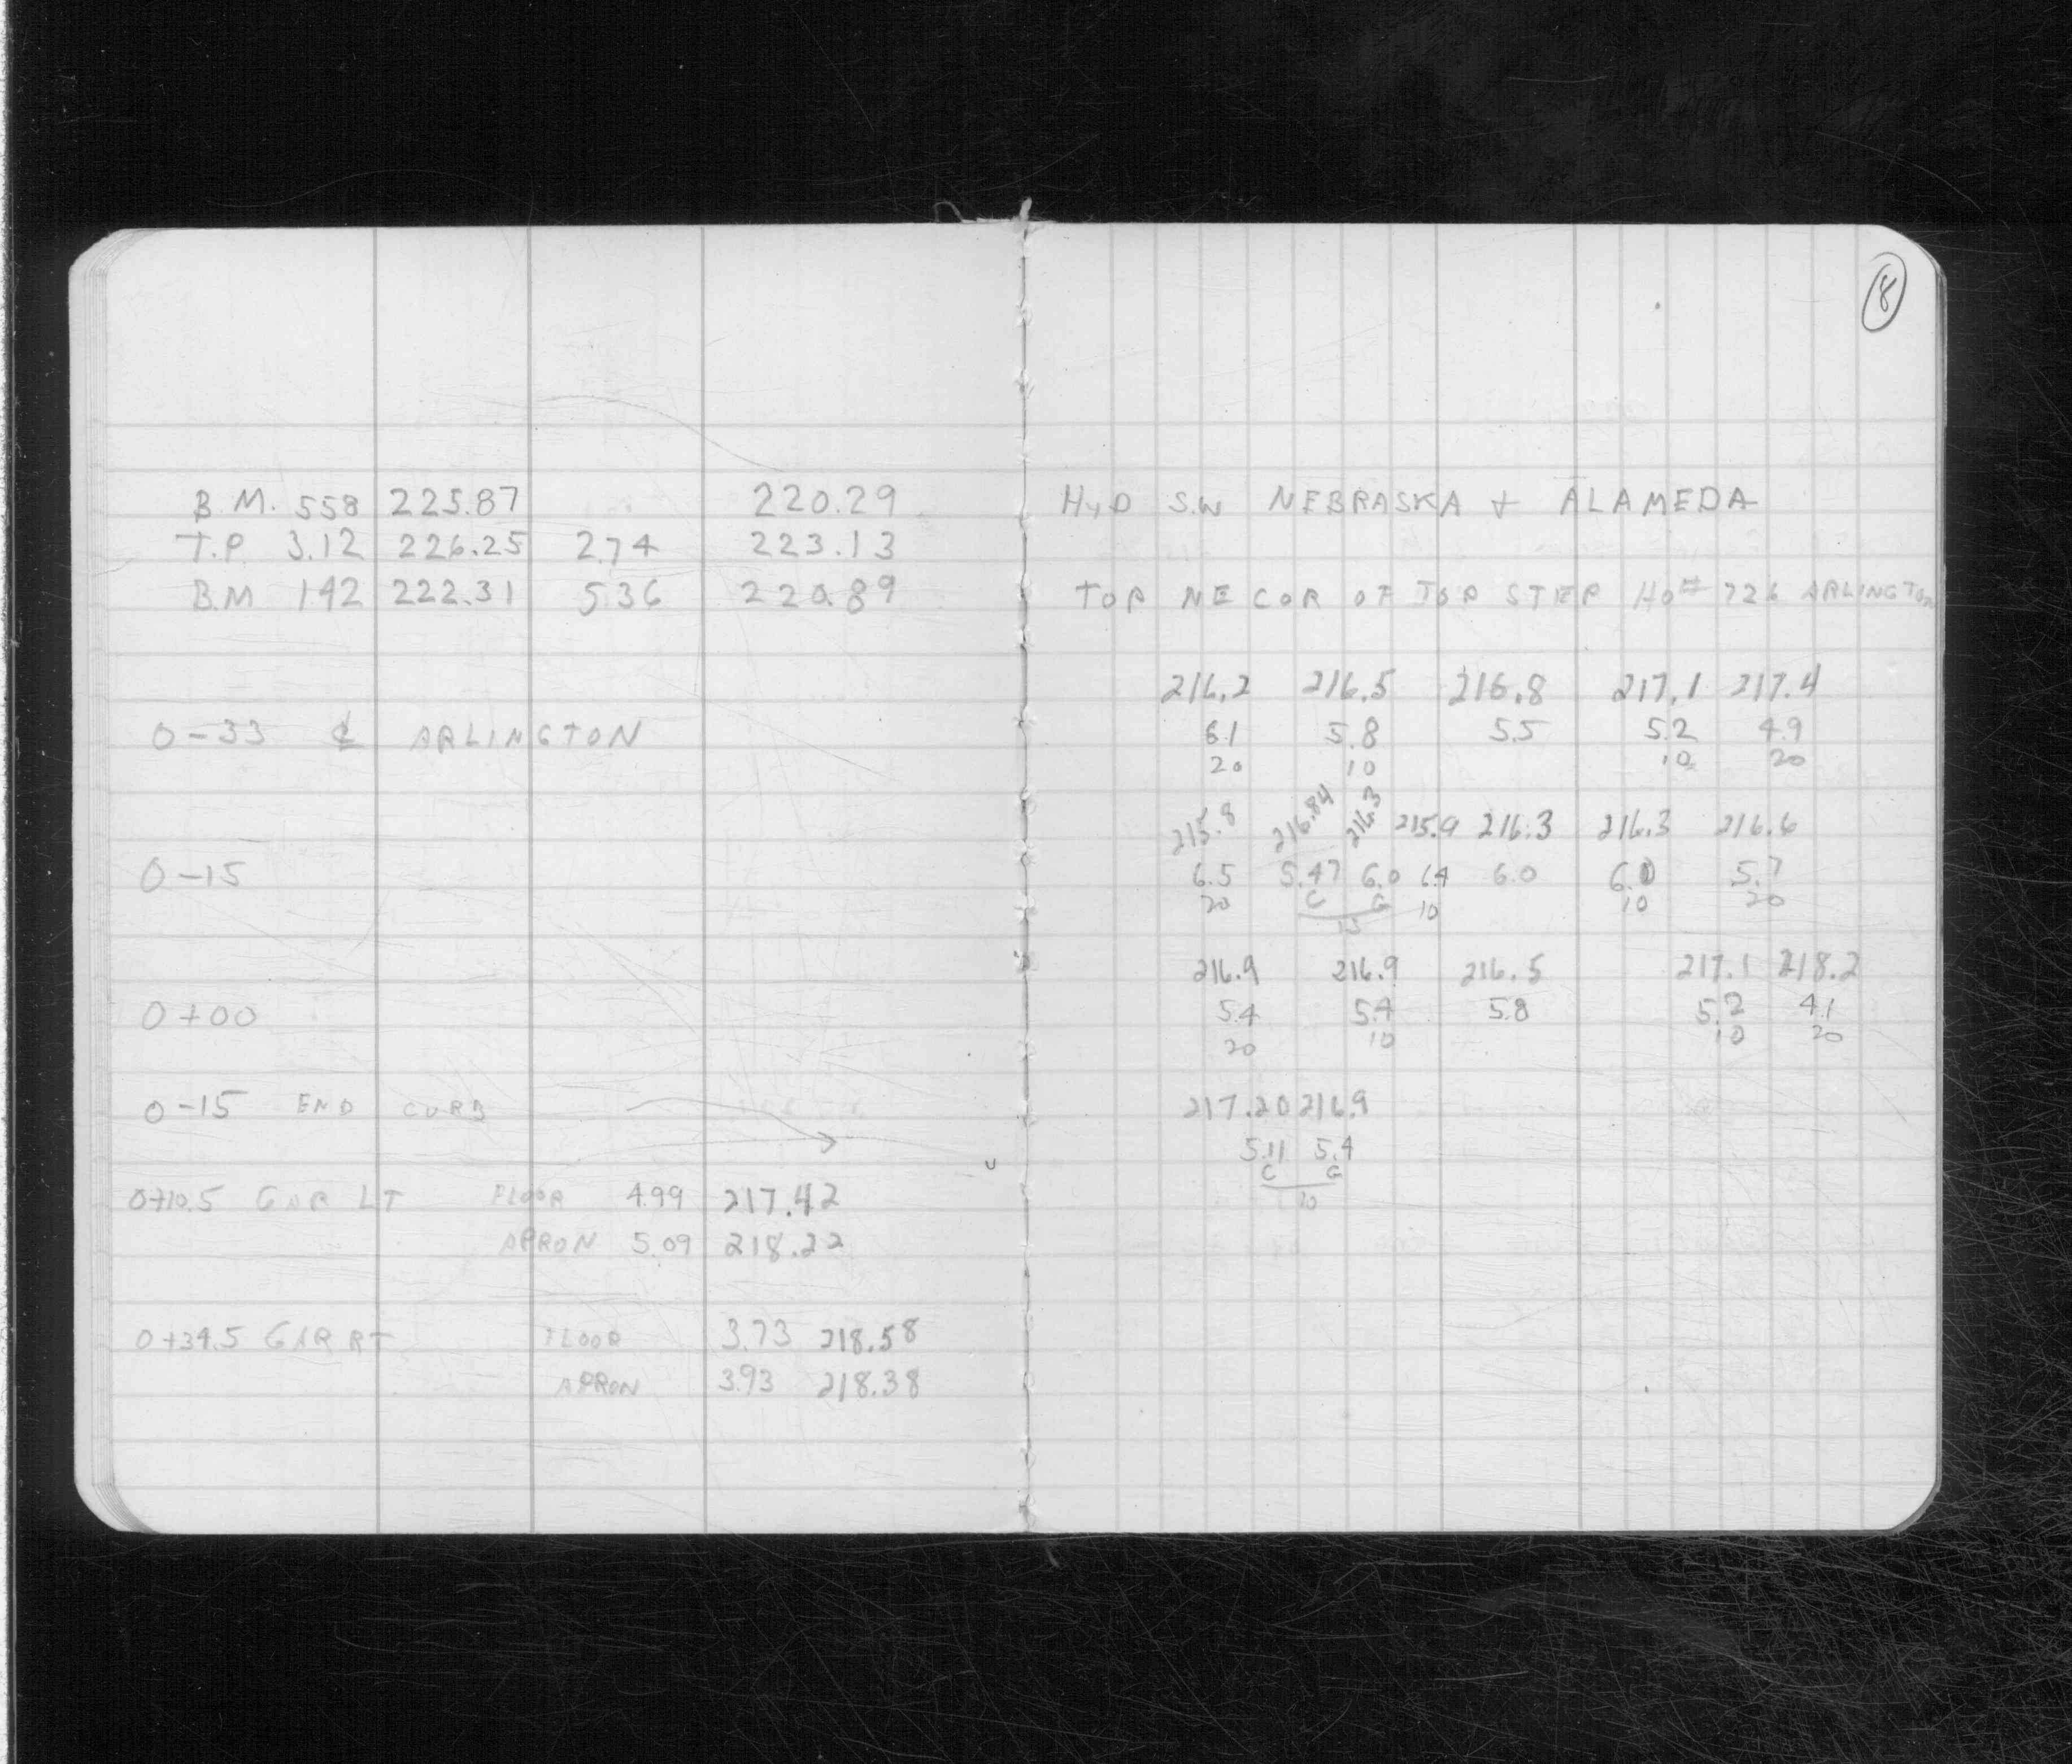 8
B.M. 558 225.87 220.29 HYD S.W NEBRASKA + ALAMEDA
T.P 3.12 226.25 2.74 223.13
B.M 142 222.31 5.36 220.89 TOP NE COR OF TOP STEP HO# 726 ARLINGTON
216.2 216.5 216.8 217.1 217.4
0-33 ℄ ARLINGTON 6.1 5.8 5.5 5.2 4.9
20 10 10 20
215.8 216.84 216.3 215.9 216.3 216.3 216.6
0-15 6.5 5.47 6.0 6.4 6.0 6.0 5.7
20 C G 10 10 20
15
216.9 216.9 216.5 217.1 218.2
0+00 5.4 5.4 5.8 5.2 4.1
20 10 10 20
0-15 END CURB 217.20 216.9
5.11 5.4
C G
0+10.5 GAR LT FLOOR 4.99 217.42 10
APRON 5.09 218.22
0+34.5 GAR RT FLOOR 3.73 218.58
APRON 3.93 218.38